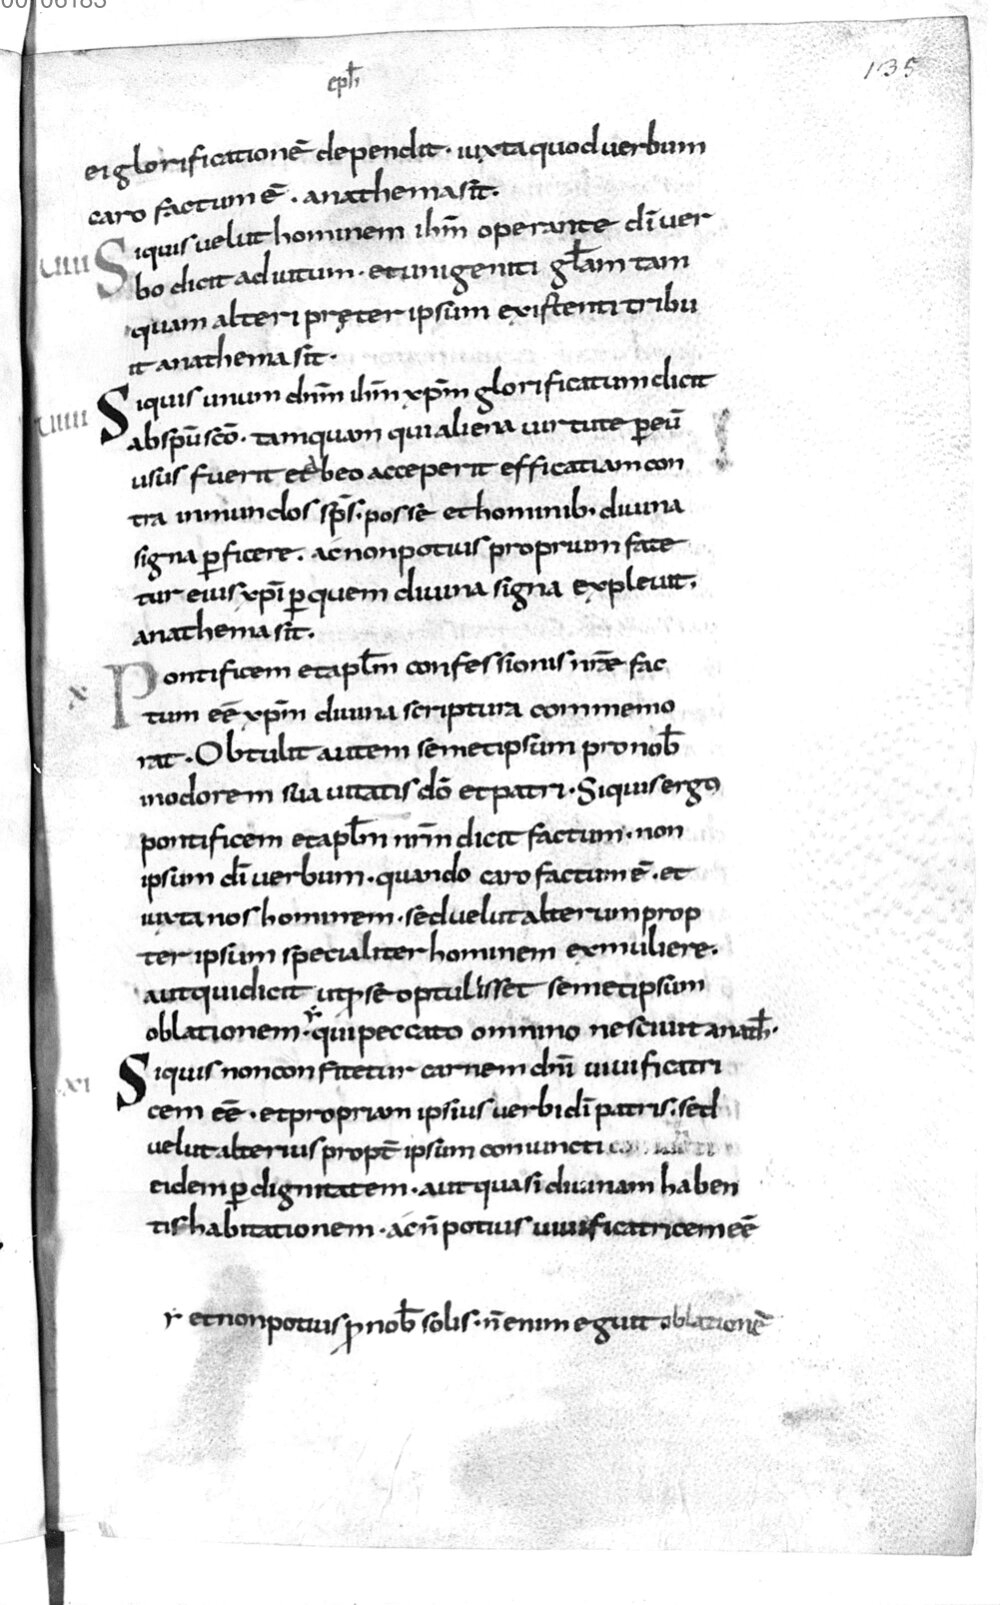 00106183
epħ
135
ei glorificationē dependit · iuxta quod verbum
caro factum ē · anathema sit ·
VIII Siquis velut hominem ihm̄ operante dī ver
bo dicit adiutum · et unigeniti gl̄am tam
quam alteri pręter ipsum existenti tribu
it anathema sit ·
VIIII Siquis unum dnm̄ ihm̄ xpm̄ glorificatum dicit
ab spū scō · tamquam qui aliena virtute ꝑ eū
usus fuerit et ab eo acceperit efficatiam con
tra inmundos sp̄s · posse et hominib · divina
signa ꝑficere · ac non potius proprium fate
tur eius xpī ꝑ quem divina signa explevit ·
anathema sit ·
X Pontificem et apłm confessionis nrae fac
tum eē xpm̄ divina scriptura commemo
rat · Obtulit autem semetipsum pro nob̄
in odorem suavitatis dō et patri · Siquis ergo
pontificem et apłm nrm̄ dicit factum · non
ipsum dī verbum · quando caro factum ē · et
iuxta nos hominem · sed velut alterum prop
ter ipsum specialiter hominem ex muliere ·
aut qui dicit utꝓ se optulisset semetipsum
oblationem · qui peccato omnino nescivit anath̄ ·
XI Siquis non confitetur carnem dnī vivificatri
cem eē · et propriam ipsius verbi dī patris · sed
velut alterius propt̄ ipsum coniuncti
eidem ꝑ dignitatem · aut quasi divinam haben
tis habitationem · ac n̄ potius vivificatricem eē
r et non potius ꝓ nob̄ solis · n̄ enim eguit oblationē